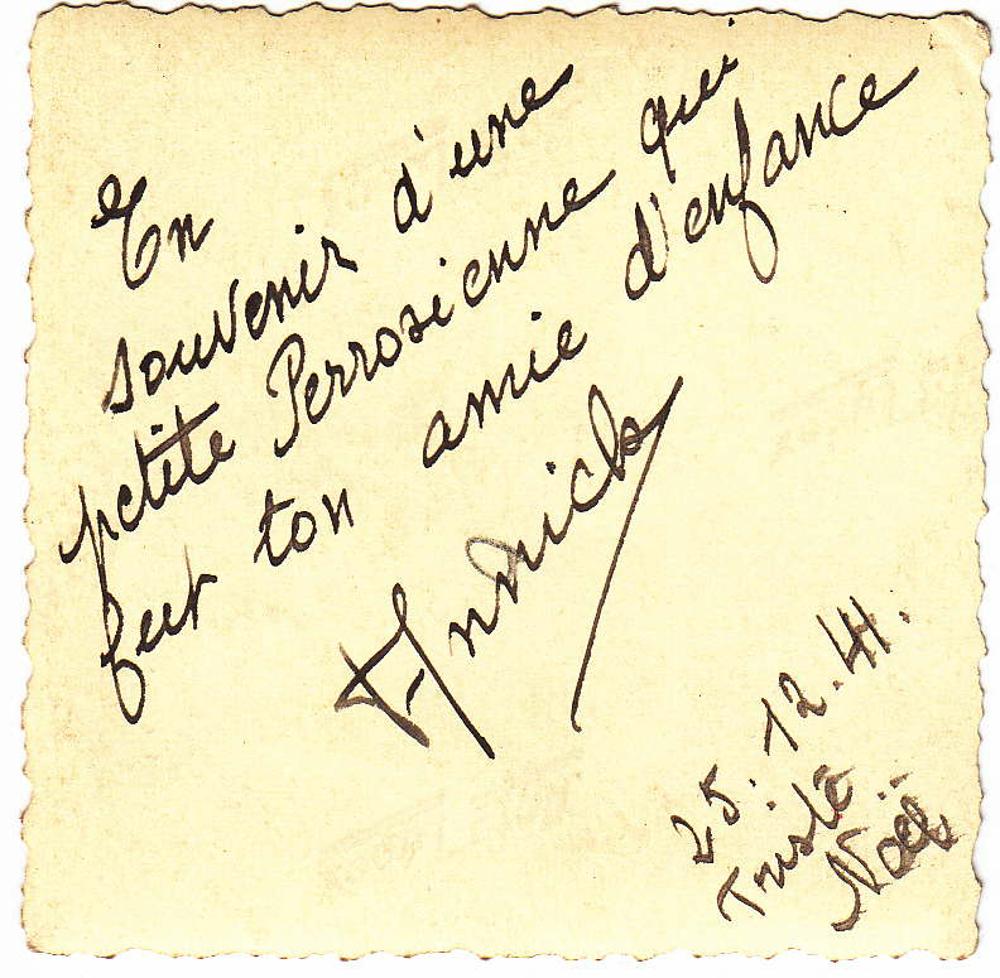 En
souvenir d'une
petite Perrosienne qui
fut ton amie d'enfance
Andrick
25.12.41.
Triste
Noël